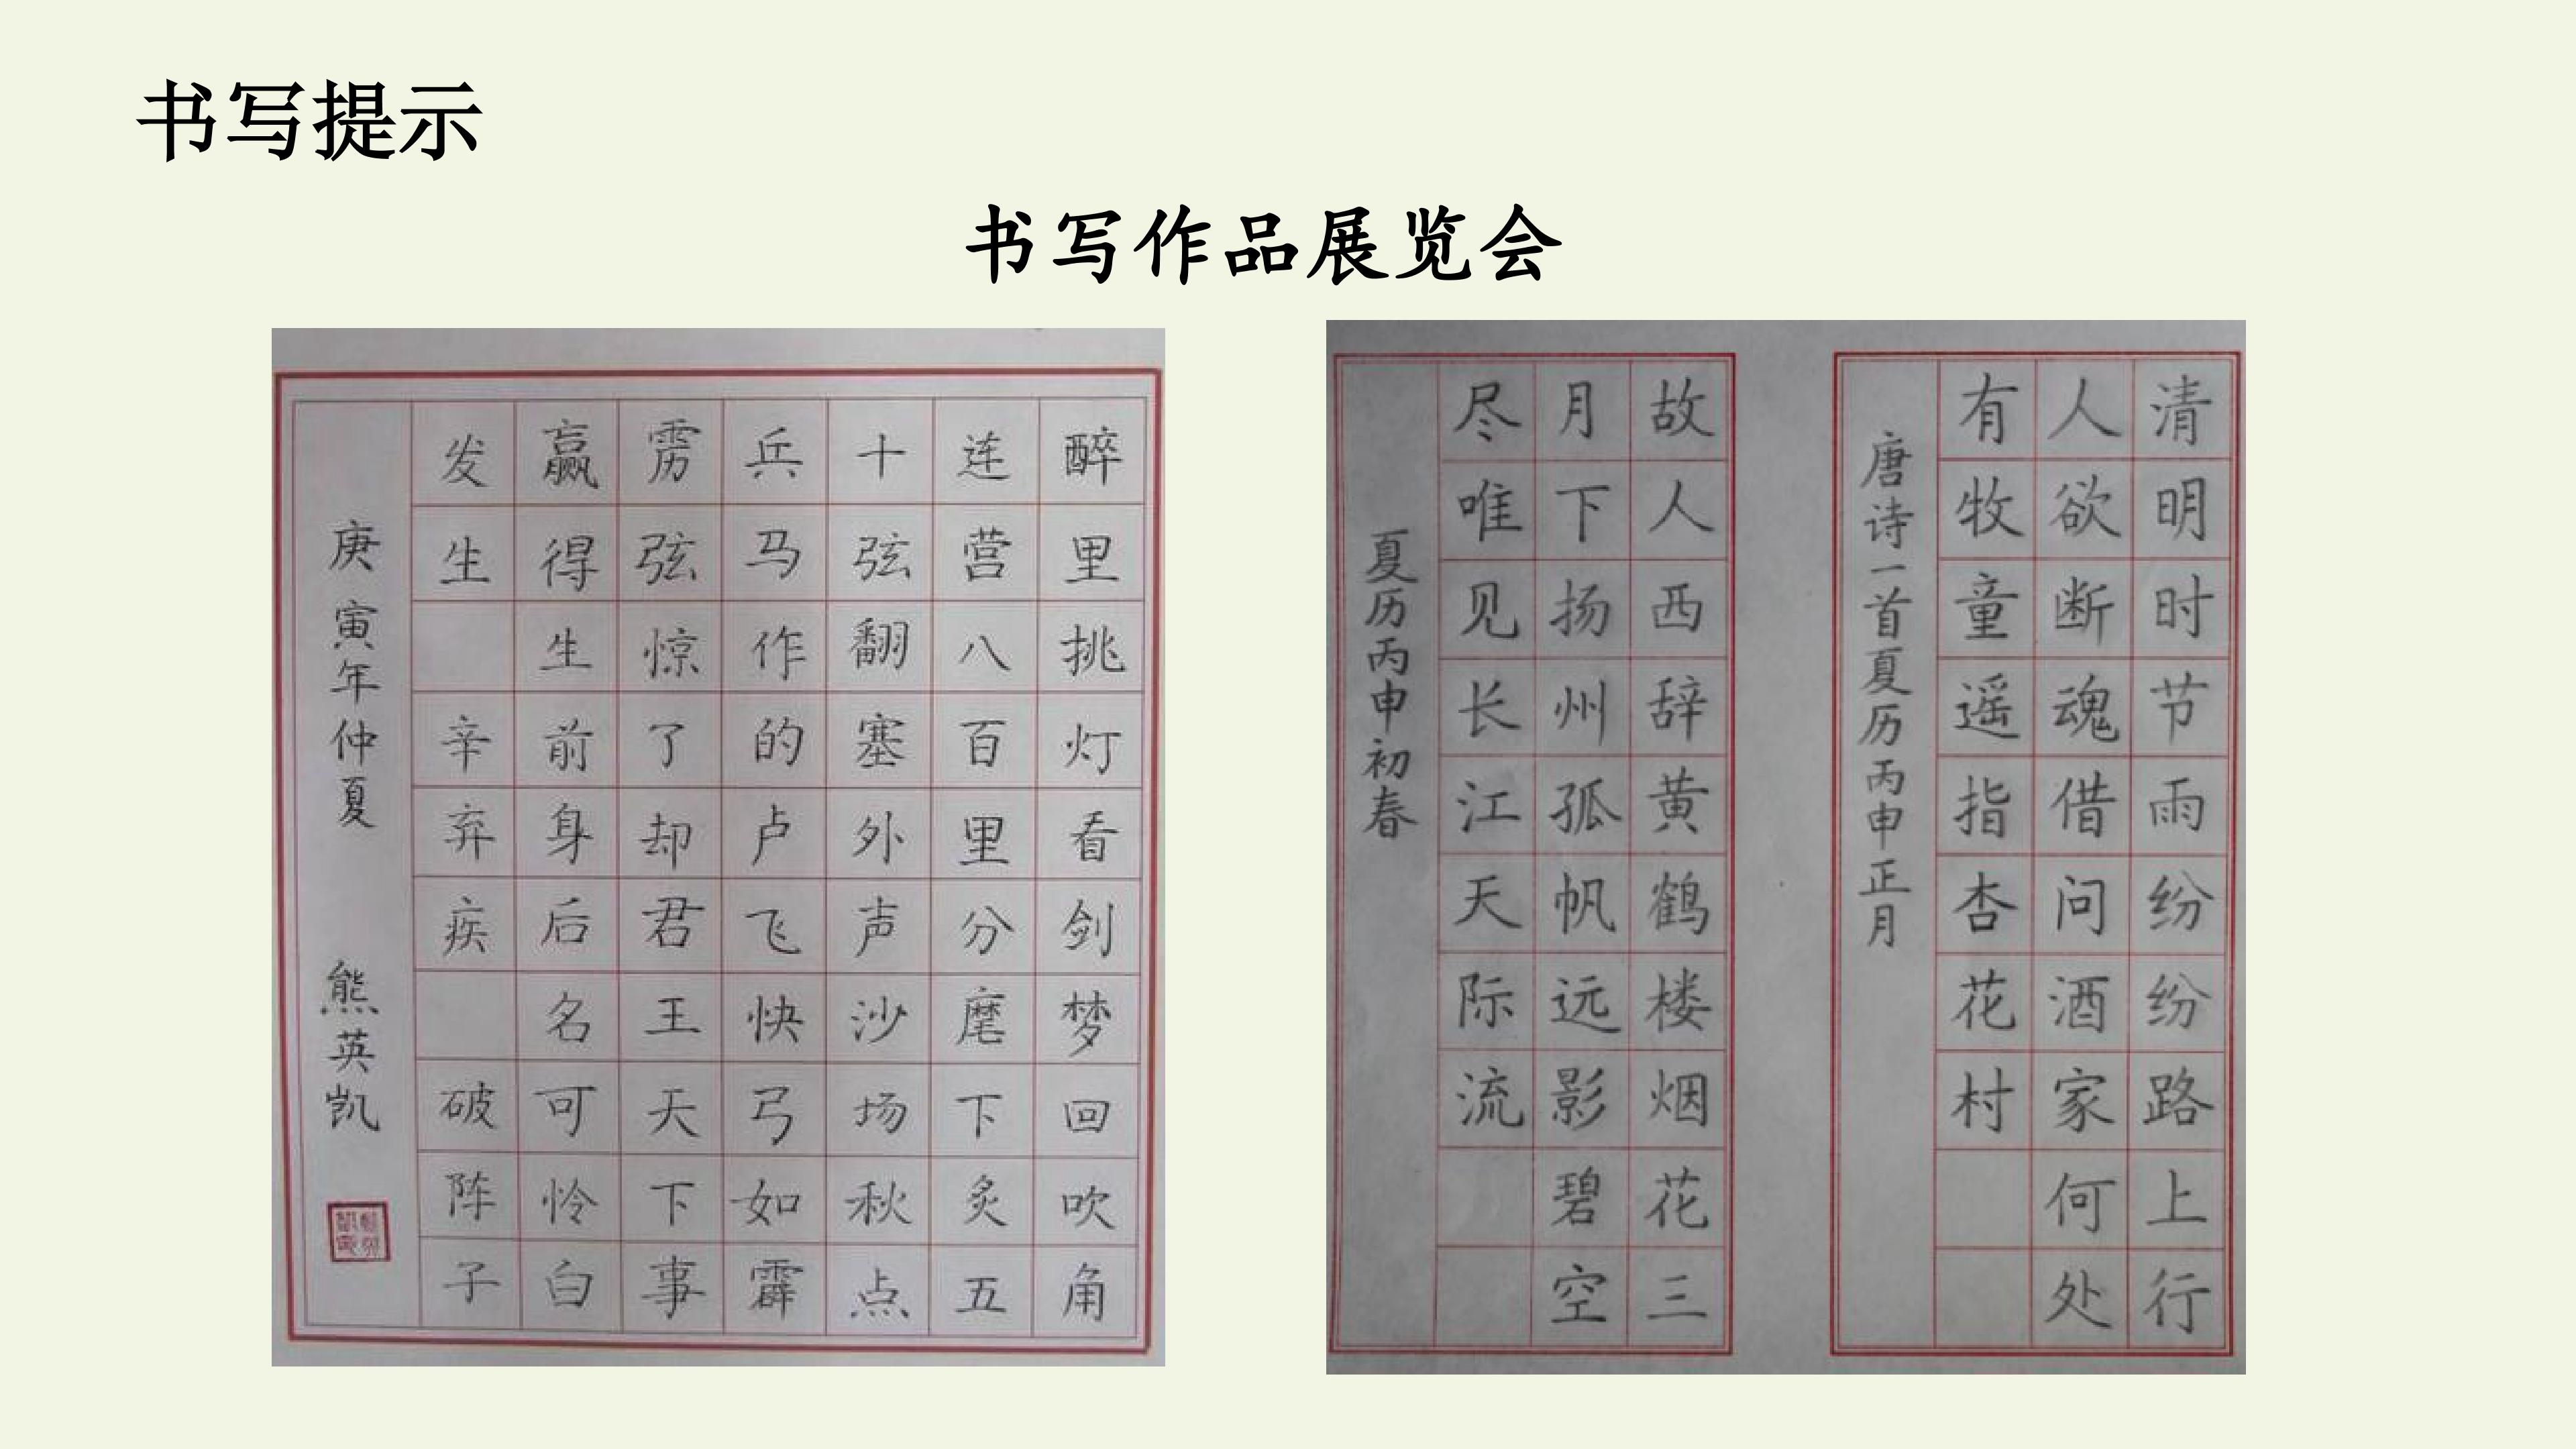 书写提示
书写作品展览会
醉里挑灯看剑梦回吹角
连营八百里分麾下炙五
十弦翻塞外声沙场秋点
兵马作的卢飞快弓如霹
雳弦惊了却君王天下事
赢得生前身后名可怜白
发生 辛弃疾 破阵子
庚寅年仲夏 熊英凯
清明时节雨纷纷路上行
人欲断魂借问酒家何处
有牧童遥指杏花村
唐诗一首夏历丙申正月
故人西辞黄鹤楼烟花三
月下扬州孤帆远影碧空
尽唯见长江天际流
夏历丙申初春